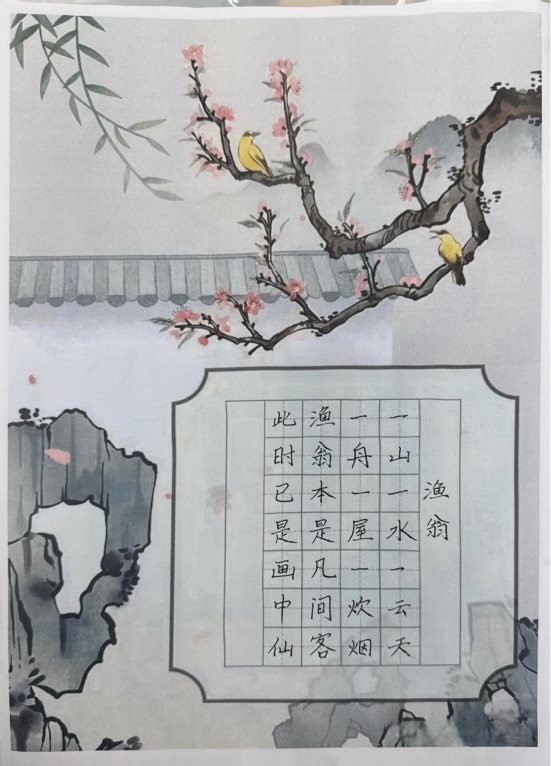 渔翁
一山一水一云天
一舟一屋一炊烟
渔翁本是凡间客
此时已是画中仙